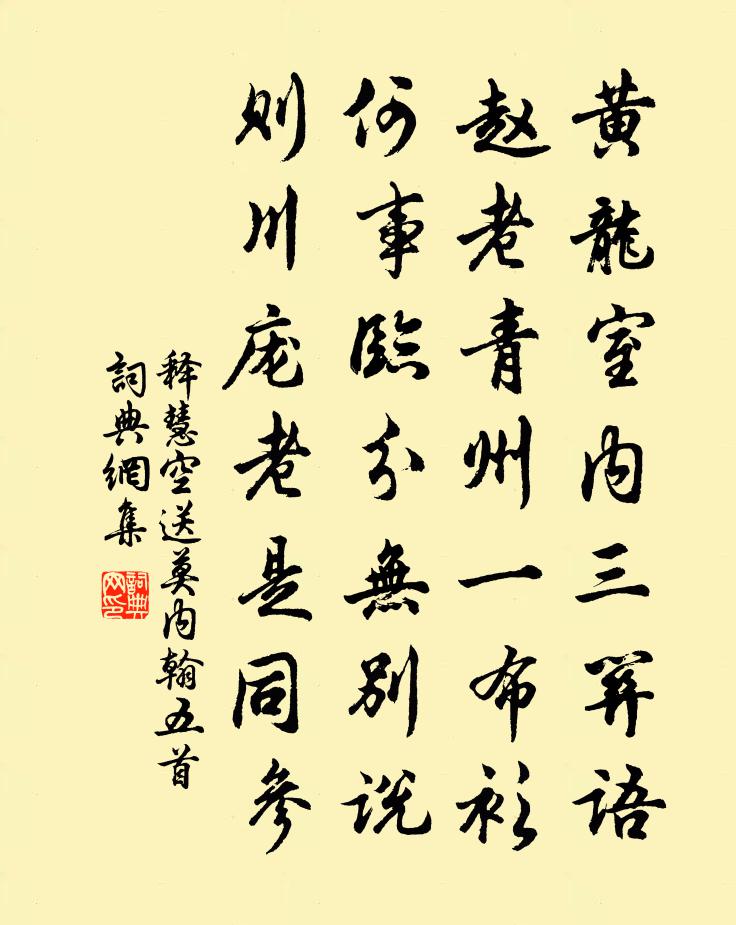 黄龍室内三關語
赵老青州一布衫
何事臨分無別説
则川庞老是同參
释慧空送莫内翰五首
詞典網集
詞典網印